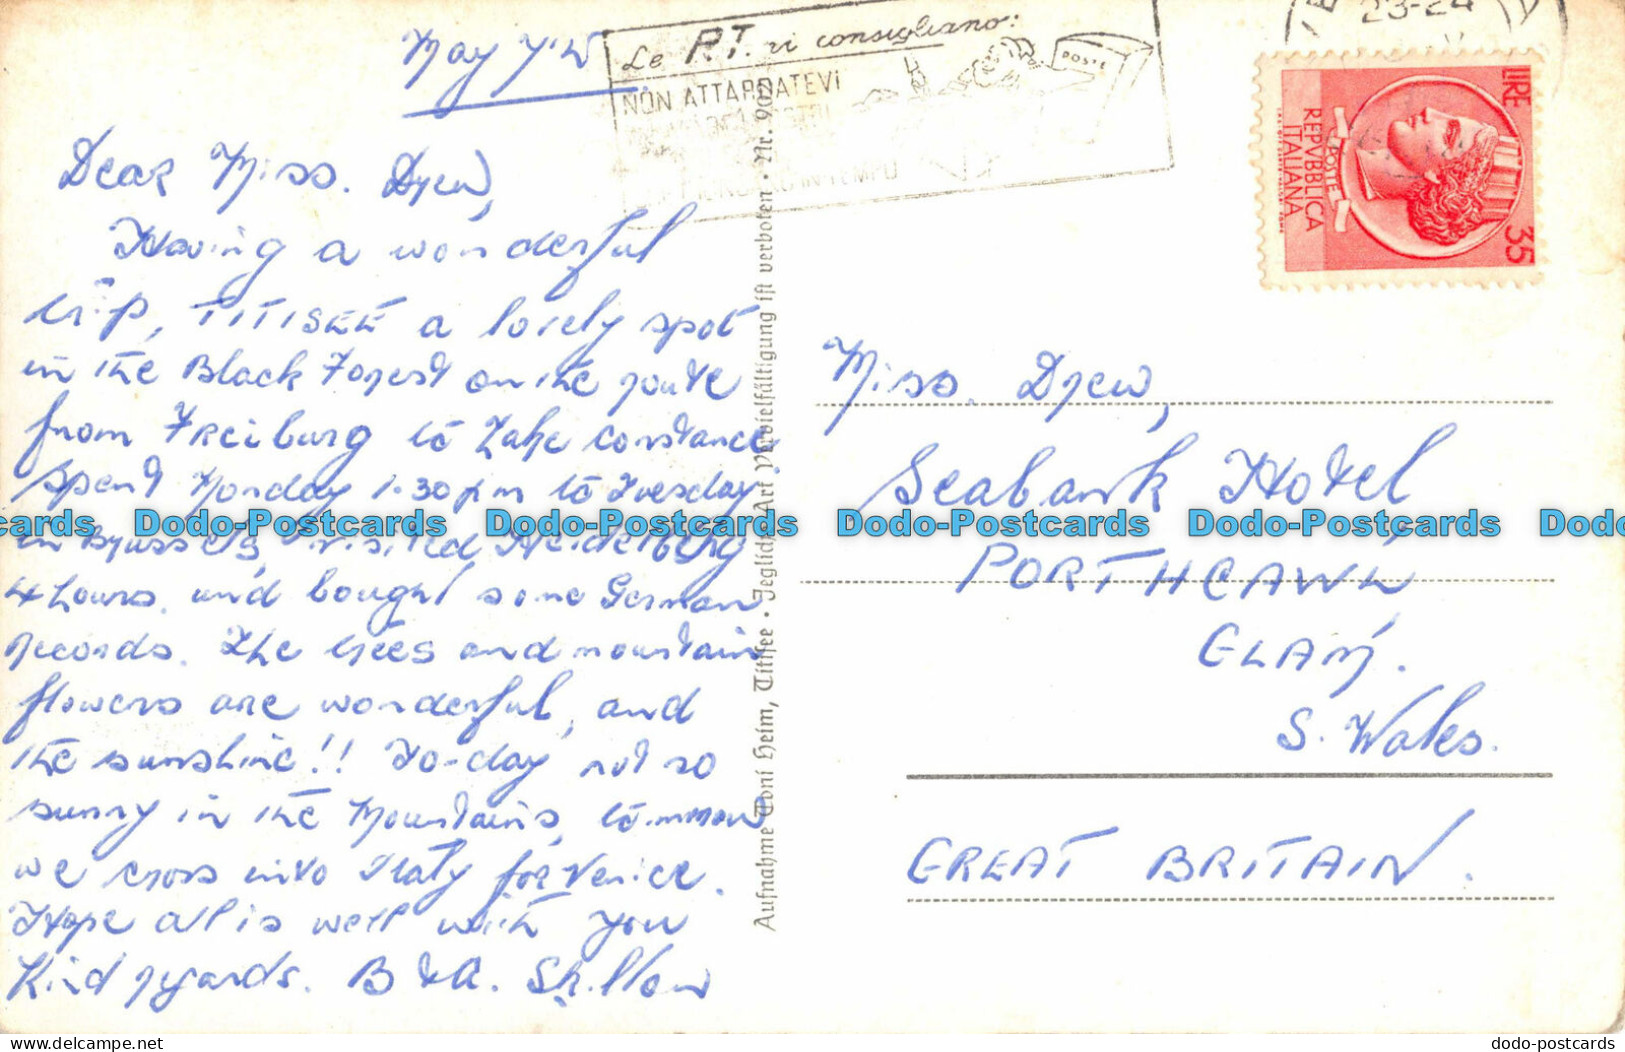 May 7th
Dear Miss. Drew,
Having a wonderful
trip, TITISEE a lovely spot
in the Black Forest on the route
from Freiburg to Lake Constance
Spent Monday 1.30pm to Tuesday
in Brussels, visited Heidelberg
4 hours, and bought some German
records. The trees and mountain
flowers are wonderful, and
the sunshine!! To-day not so
sunny in the Mountains, tomorrow
we cross into Italy for Venice.
Hope all is well with you
Kind regards. B & A. Skillow
Le P.T. vi consigliano:
NON ATTARDATEVI
IN TEMPO
POSTE
23-24
LIRE 35
POSTE
REPVBBLICA
ITALIANA
Aufnahme Toni Heim, Titisee · Jegliche Art Vervielfältigung ist verboten · Nr. 902
Miss. Drew,
Seabank Hotel,
PORTHCAWL
GLAM.
S. Wales.
GREAT BRITAIN.
Dodo-Postcards Dodo-Postcards Dodo-Postcards Dodo-Postcards
delcampe.net
dodo-postcards